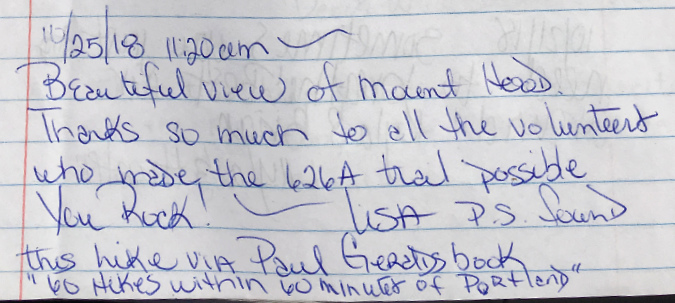 10/25/18 11:20am
Beautiful view of Mount Hood.
Thanks so much to all the volunteers
who made, the 626A trail possible
You Rock! LISA P.S. found
this hike via Paul Gerald's book
"60 Hikes within 60 minutes of Portland"